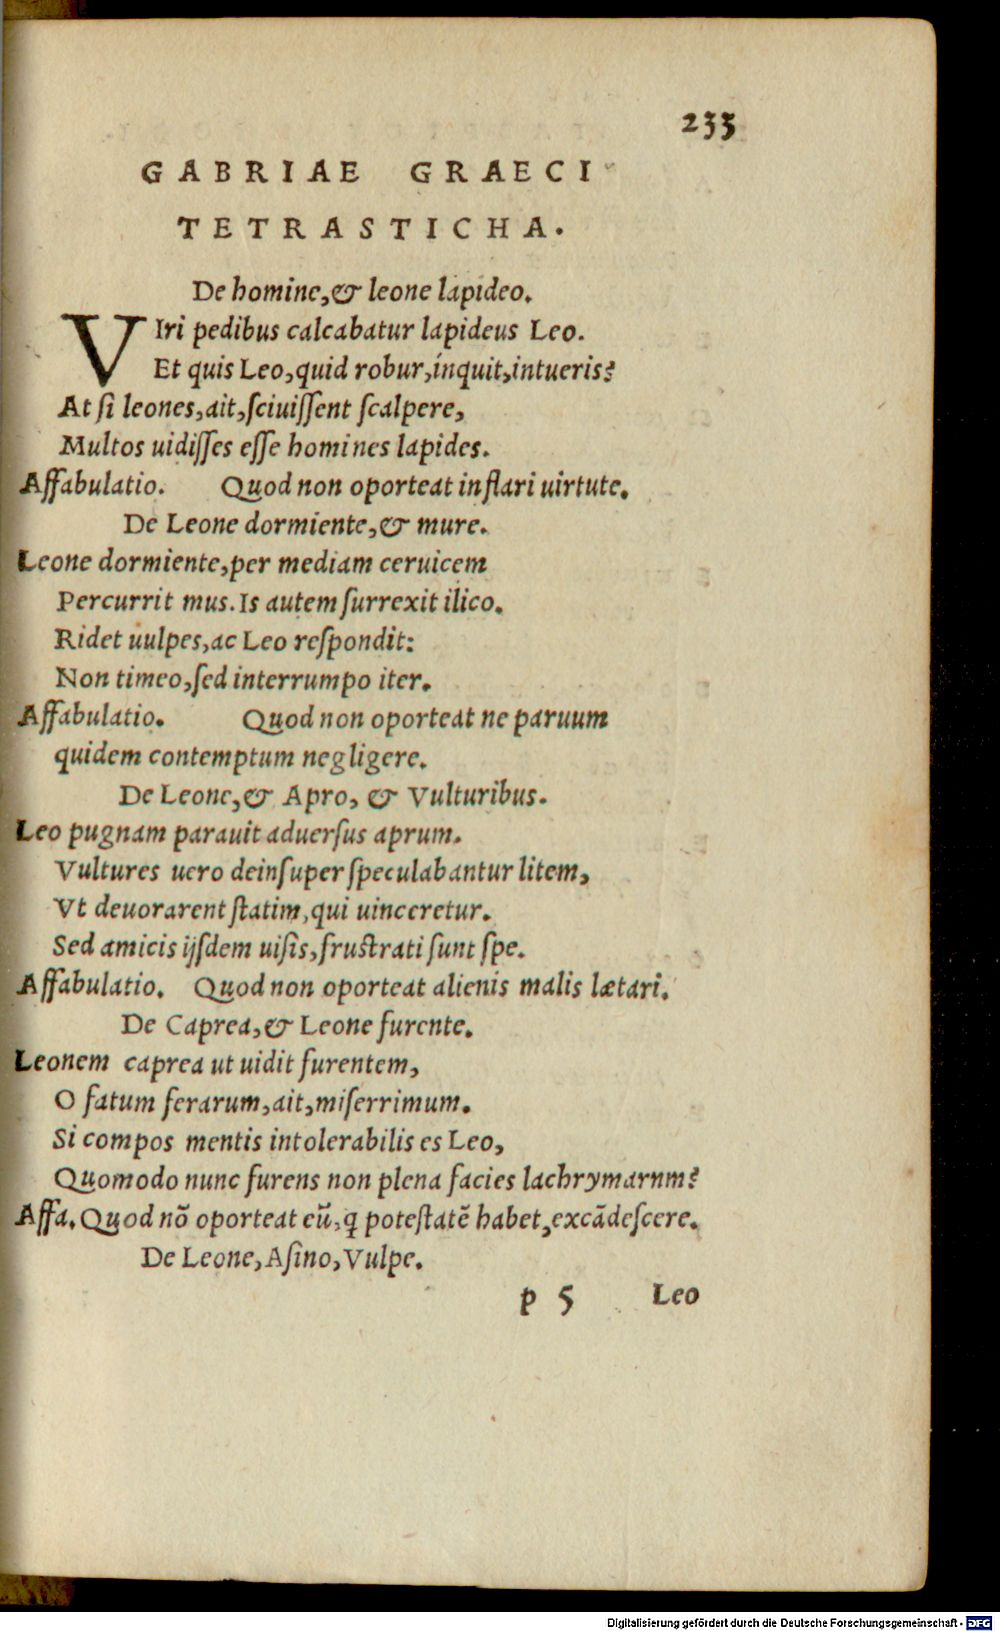 233
GABRIAE GRAECI
TETRASTICHA.
De homine,& leone lapideo.
VIri pedibus calcabatur lapideus Leo.
Et quis Leo,quid robur,inquit,intueris?
At ſi leones,ait,ſciuiſſent ſcalpere,
Multos uidiſſes eſſe homines lapides.
Affabulatio. Quod non oporteat inflari uirtute.
De Leone dormiente,& mure.
Leone dormiente,per mediam ceruicem
Percurrit mus. Is autem ſurrexit ilico.
Ridet uulpes,ac Leo reſpondit:
Non timeo,ſed interrumpo iter.
Affabulatio. Quod non oporteat ne paruum
quidem contemptum negligere.
De Leone,& Apro, & Vulturibus.
Leo pugnam parauit aduerſus aprum.
Vultures uero deinſuper ſpeculabantur litem,
Vt deuorarent ſtatim,qui uinceretur.
Sed amicis ijſdem uiſis,fruſtrati ſunt ſpe.
Affabulatio. Quod non oporteat alienis malis lætari.
De Caprea,& Leone furente.
Leonem caprea ut uidit furentem,
O fatum ferarum,ait,miſerrimum.
Si compos mentis intolerabilis es Leo,
Quomodo nunc furens non plena facies lachrymarnm?
Affa.Quod nō oporteat eū,q poteſtatē habet,excādeſcere.
De Leone,Aſino,Vulpe.
p 5 Leo
Digitalisierung gefördert durch die Deutsche Forschungsgemeinschaft - DFG